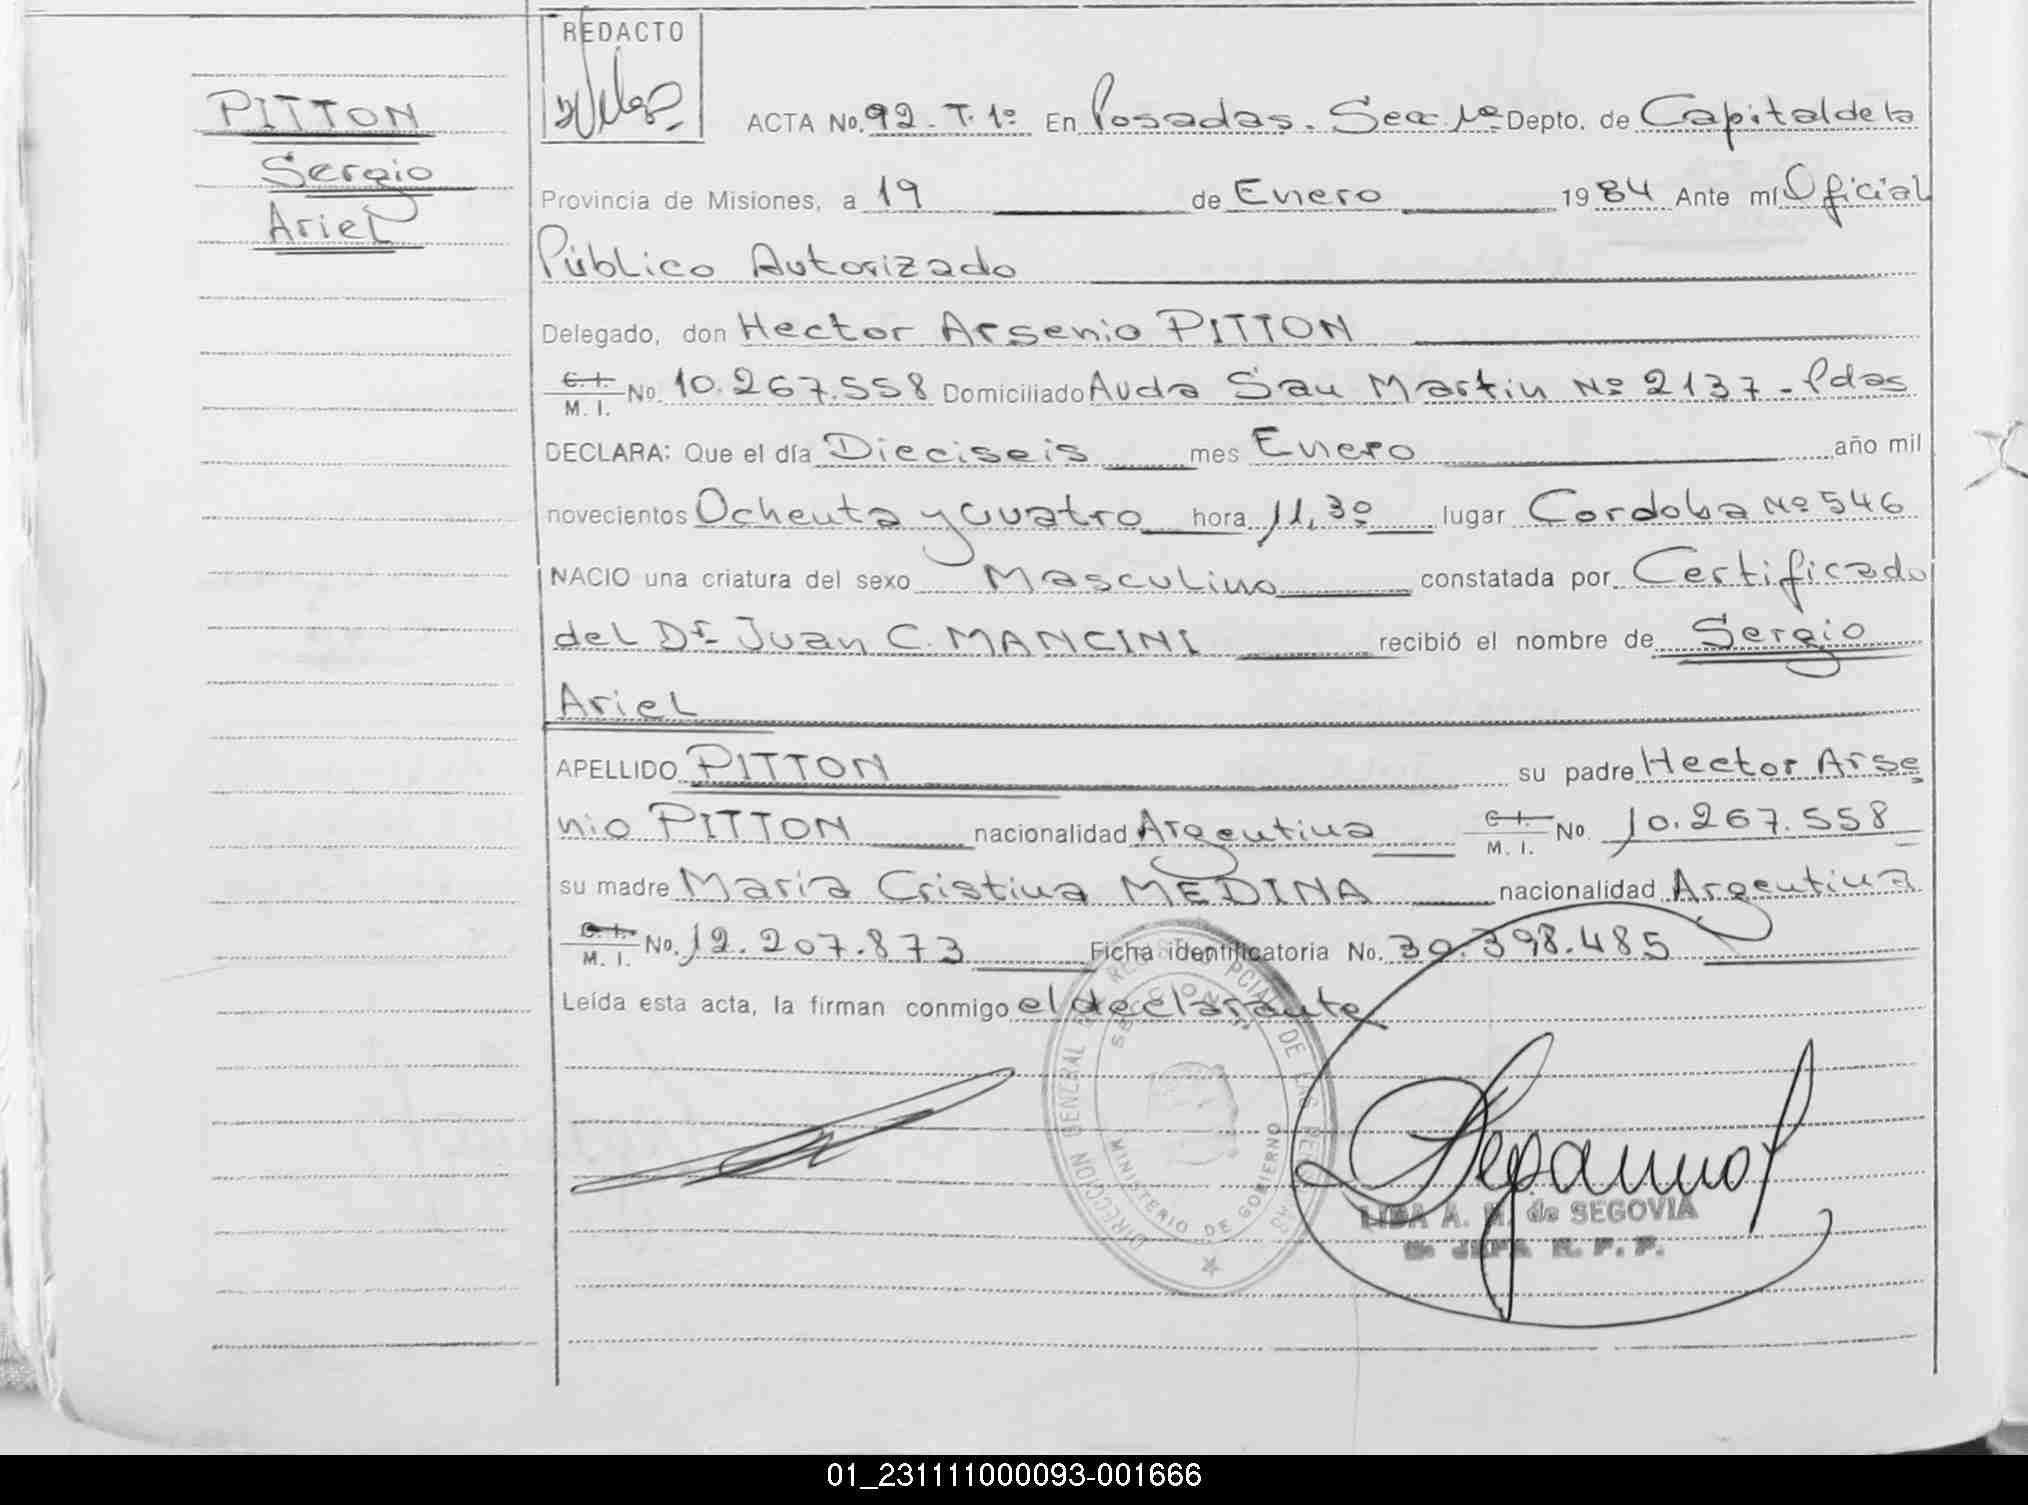 REDACTO
PITTON
Sergio
Ariel
ACTA No. 92. T. 1º En Posadas. Sec. 1ª Depto. de Capital de la
Provincia de Misiones, a 19 de Enero 1984 Ante mí Oficial
Público Autorizado
Delegado, don Hector Arsenio PITTON
C. I. M. I. No. 10.267.558 Domiciliado Avda San Martin Nº 2137 - Pdas
DECLARA: Que el día Dieciseis mes Enero año mil
novecientos Ochenta y cuatro hora 11,30 lugar Cordoba Nº 546
NACIO una criatura del sexo Masculino constatada por Certificado
del Dr. Juan C. MANCINI recibió el nombre de Sergio
Ariel
APELLIDO PITTON su padre Hector Arse
nio PITTON nacionalidad Argentina C. I. M. I. No. 10.267.558
su madre María Cristina MEDINA nacionalidad Argentina
C. I. M. I. No. 12.207.873 Ficha identificatoria No. 30.398.485
Leída esta acta, la firman conmigo el declarante
DIRECCION GENERAL REGISTRO PCIAL DE LAS PERSONAS
SECCION 1
MINISTERIO DE GOBIERNO
A. M. de SEGOVIA
JEFA R. P. P.
01_231111000093-001666